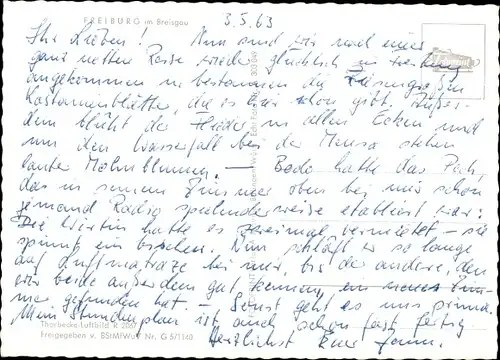 FREIBURG im Breisgau
3.5.63
Ihr Lieben! Nun sind wir nach einer
ganz netten Reise wieder glücklich in Freiburg
angekommen u. bestaunen die
Kastanienblüte, die es hier schon gibt. Außer-
dem blüht der Flieder in allen Ecken und
um den Wasserfall bei der Mensa stehen
lauter Mohnblumen. — Bodo hatte das Pech,
das in seinem Zimmer oben bei mir schon
jemand Radio spielenderweise etabliert war.
Die Wirtin hatte es zweimal vermietet – sie
spinnt ein bisschen. Nun schläft er so lange
auf Luftmatraze bei mir, bis der andere, den
wir beide außerdem gut kennen, ein neues Zim-
mer gefunden hat. – Sonst geht es uns prima.
Mein Stundenplan ist auch schon fast fertig.
Thorbecke-Luftbild R 2067
Freigegeben v. BStMfWuV Nr. G 5/1160
Herzlichst Euer